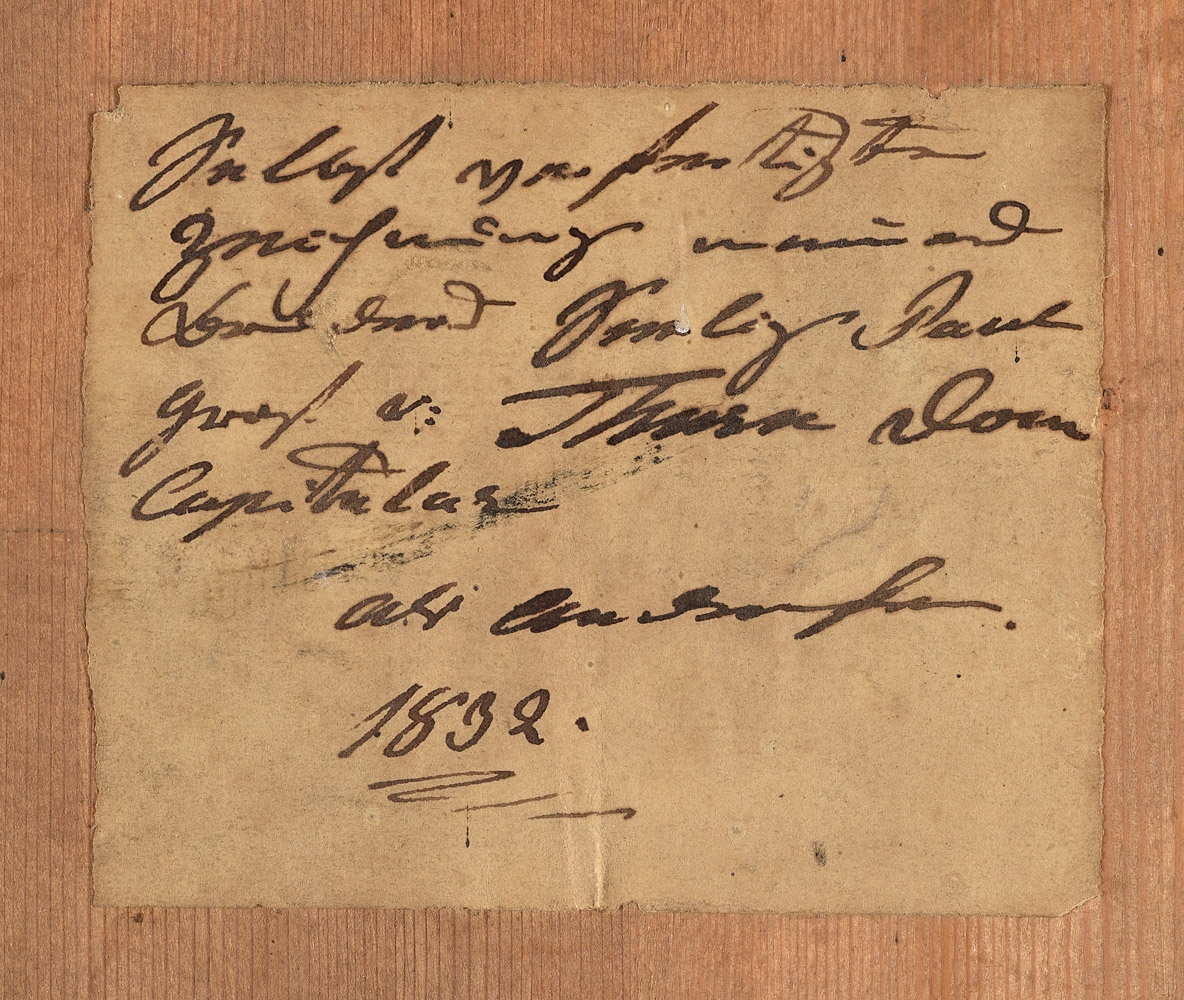 Selbst verfertigte
Zeichnung meines
Bruders Seelig Paul
Graf v: Thurn Dom
Capitular
als Andenken.
1832.